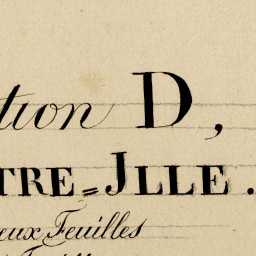 tion D,
TRE=JLLE.
eux Feuilles